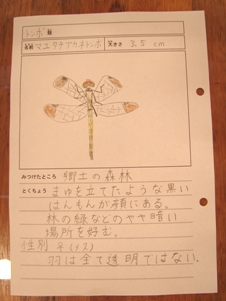 トンボ 類
名前 マユタテアカネトンボ 大きさ 3.5 cm
みつけたところ 郷土の森林
とくちょう まゆを立てたような黒い
はんもんが額にある。
林の縁などのやや暗い
場所を好む。
性別 ♀(メス)
羽は全て透明ではない。